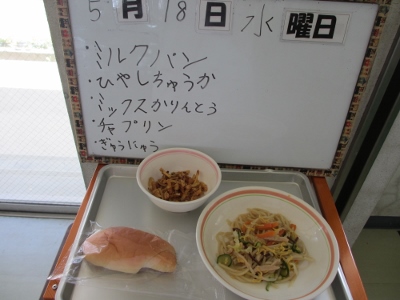 5月18日水曜日
・ミルクパン
・ひやしちゅうか
・ミックスかりんとう
・茶プリン
・ぎゅうにゅう